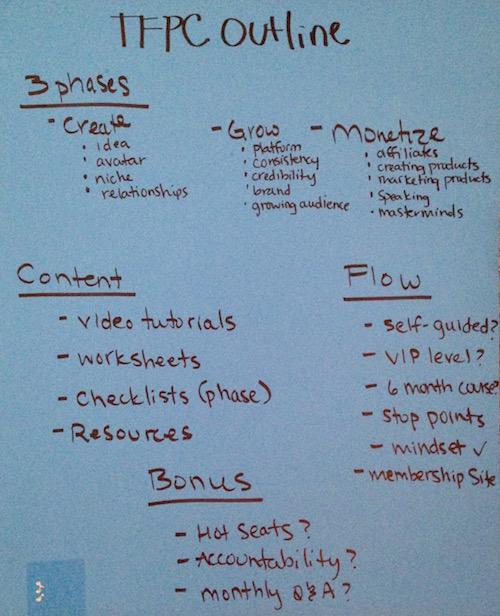 TFPC Outline
3 phases
- Create
• idea
• avatar
• niche
• relationships
- Grow
• platform
• consistency
• credibility
• brand
• growing audience
- Monetize
• affiliates
• creating products
• marketing products
• speaking
• masterminds
Content
- video tutorials
- worksheets
- checklists (phase)
- Resources
Flow
- self-guided?
- VIP level?
- 6 month course?
- stop points
- mindset ✓
- membership site
Bonus
- Hot Seats?
- Accountability?
- monthly Q & A?